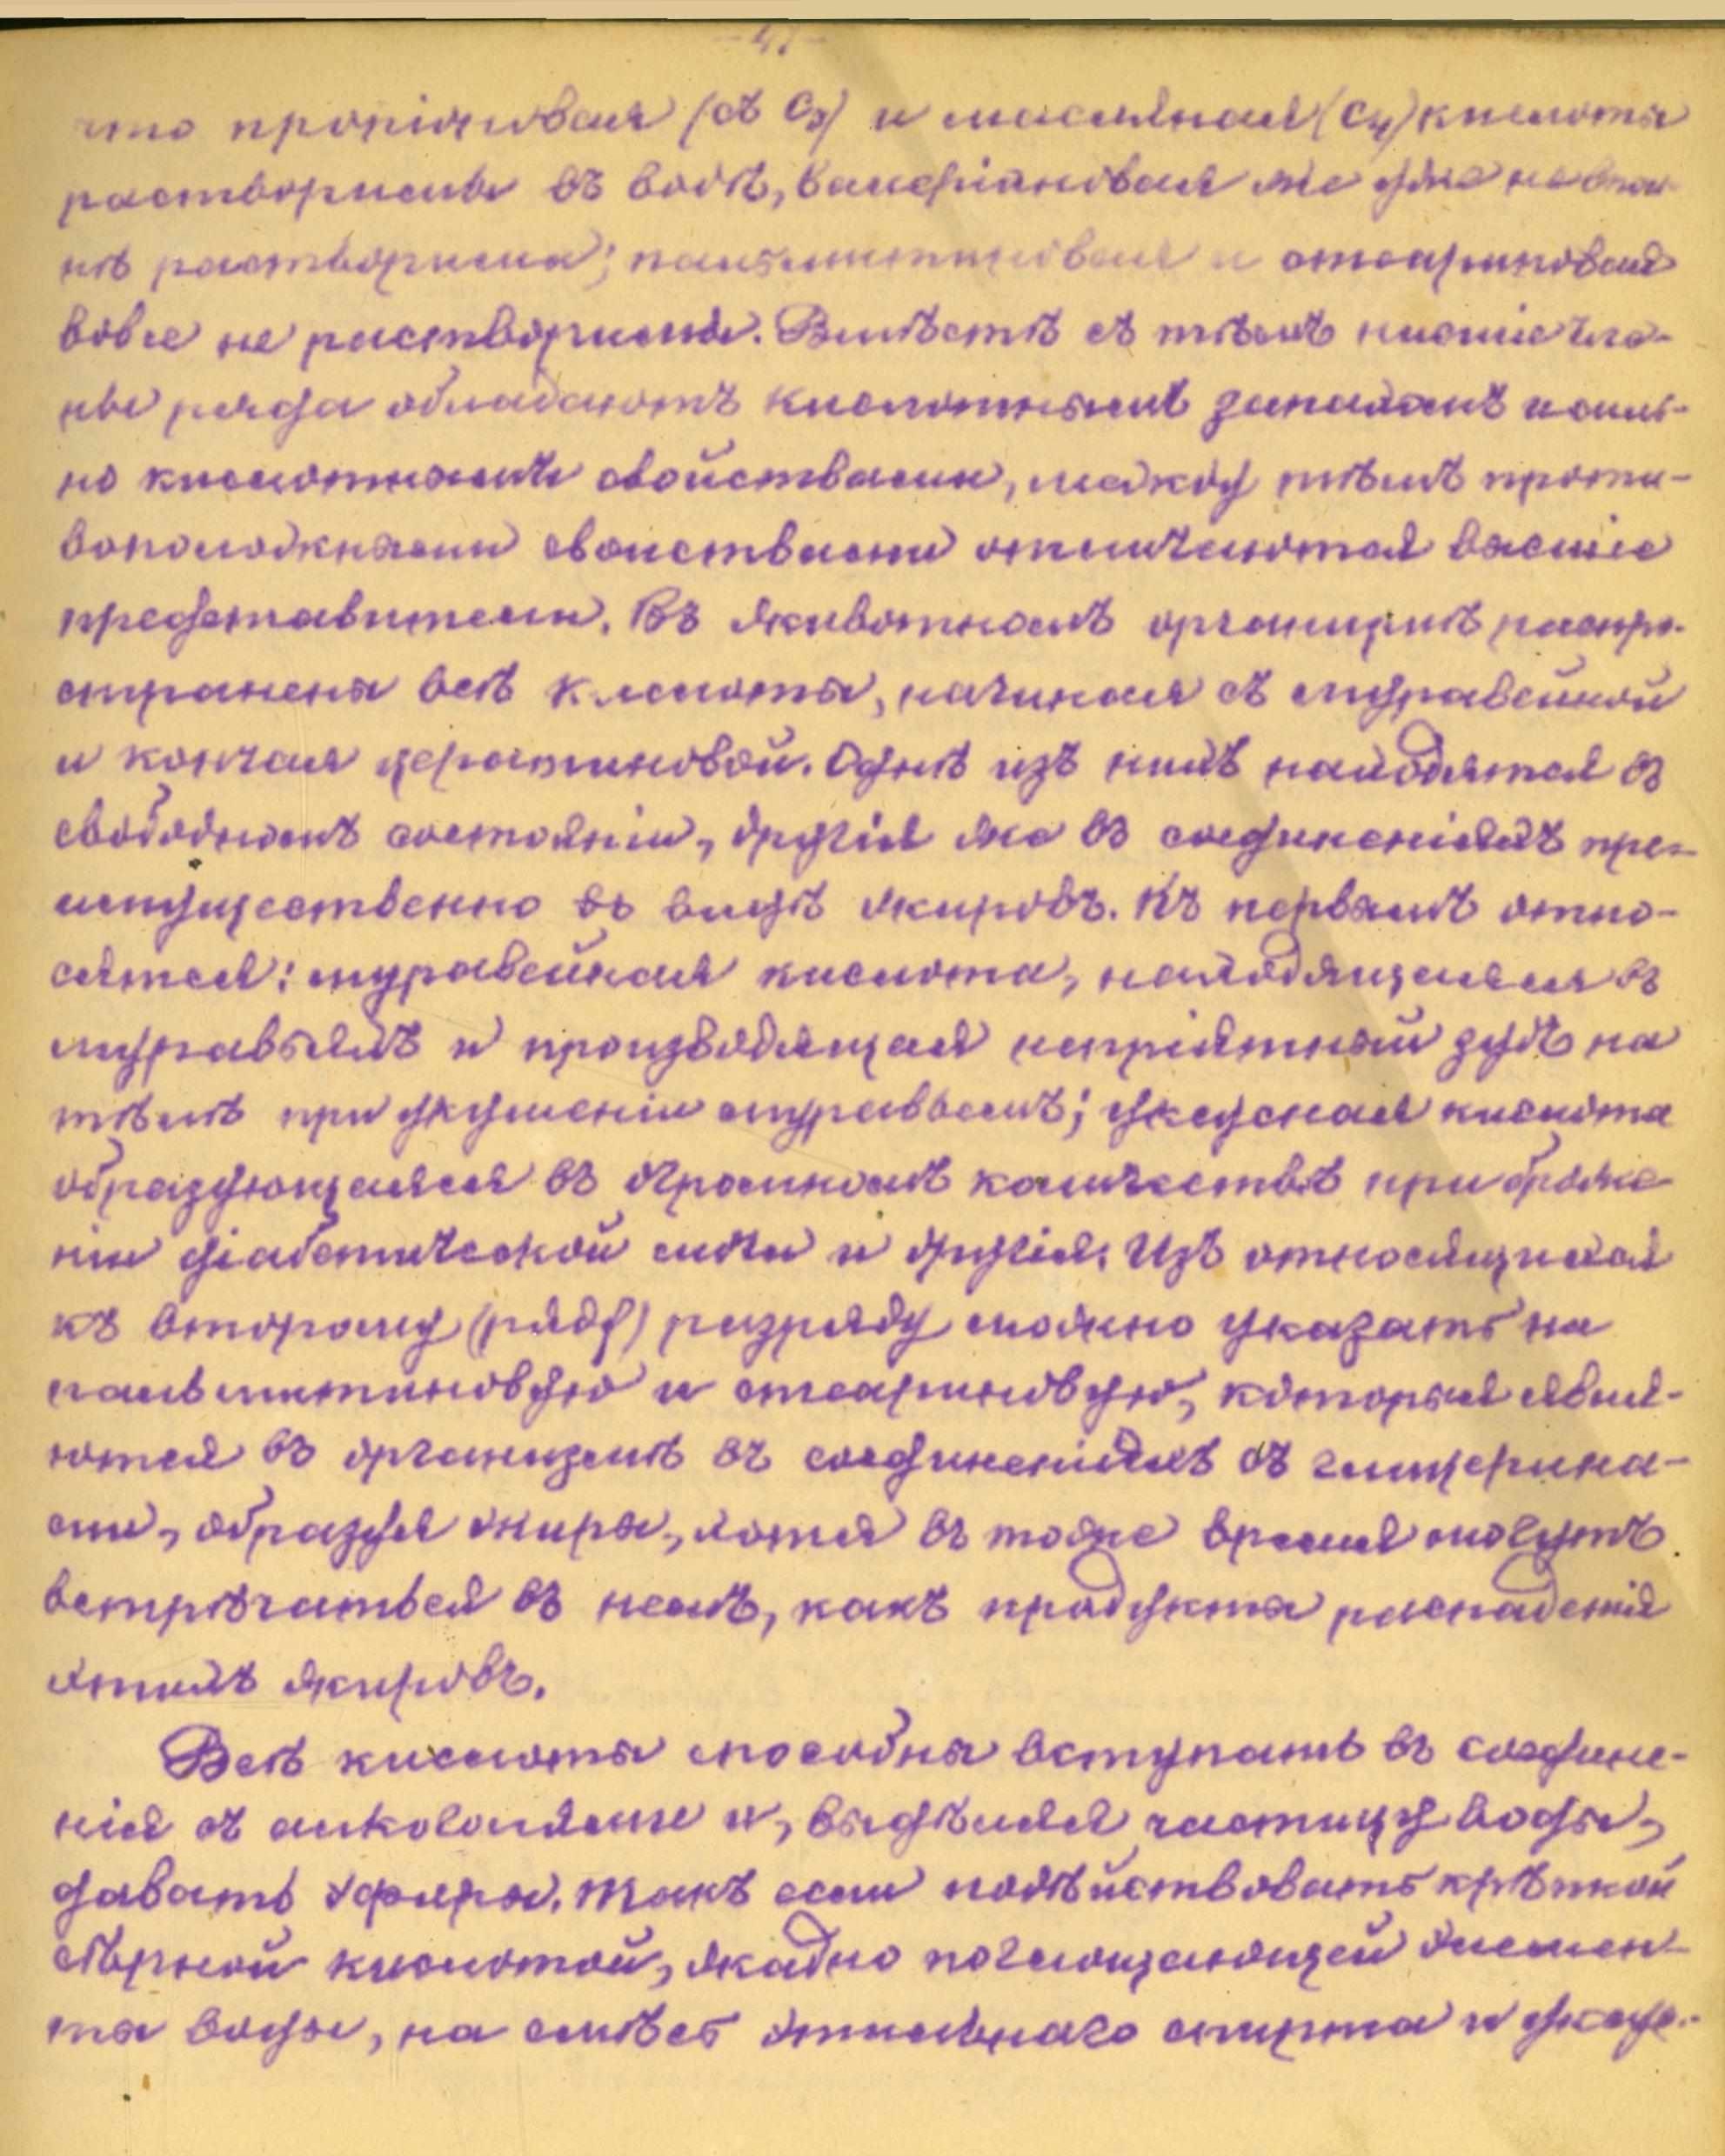 -47-
что пропіоновая (съ C₃) и масляная (C₄) кислоты
растворимы въ водѣ, валеріановая же уже не впол-
нѣ растворима; пальмитиновая и стеариновая
вовсе не растворимы. Вмѣстѣ съ тѣмъ низшіе чле-
ны ряда обладаютъ кислотнымъ запахомъ и силь-
но кислотными свойствами, между тѣмъ проти-
воположными свойствами отличаются высшіе
представители. Въ животномъ организмѣ распро-
странены всѣ кислоты, начиная съ муравейной
и кончая церотиновой. Однѣ изъ нихъ находятся въ
свободномъ состояніи, другія же въ соединеніяхъ пре-
имущественно въ видѣ жировъ. Къ первымъ отно-
сятся: муравейная кислота, находящаяся въ
муравьяхъ и производящая непріятный зудъ на
тѣлѣ при укушеніи муравьемъ; уксусная кислота
образующаяся въ громномъ количествѣ при броже-
ніи діабетической мочи и другія. Изъ относящихся
къ второму (ряду) разряду можно указать на
пальмитиновую и стеариновую, которыя явля-
ются въ организмѣ въ соединеніяхъ съ глицерина-
ми, образуя жиры, хотя въ тоже время могутъ
встрѣчаться въ немъ, какъ продукты распаденія
этихъ жировъ.
Всѣ кислоты способны вступать въ соедине-
нія съ алкоголями и, выдѣляя частицу воды,
давать эфиры. Такъ если подѣйствовать крѣпкой
сѣрной кислотой, жадно поглощающей элемен-
ты воды, на смѣсь этильнаго спирта и уксус-